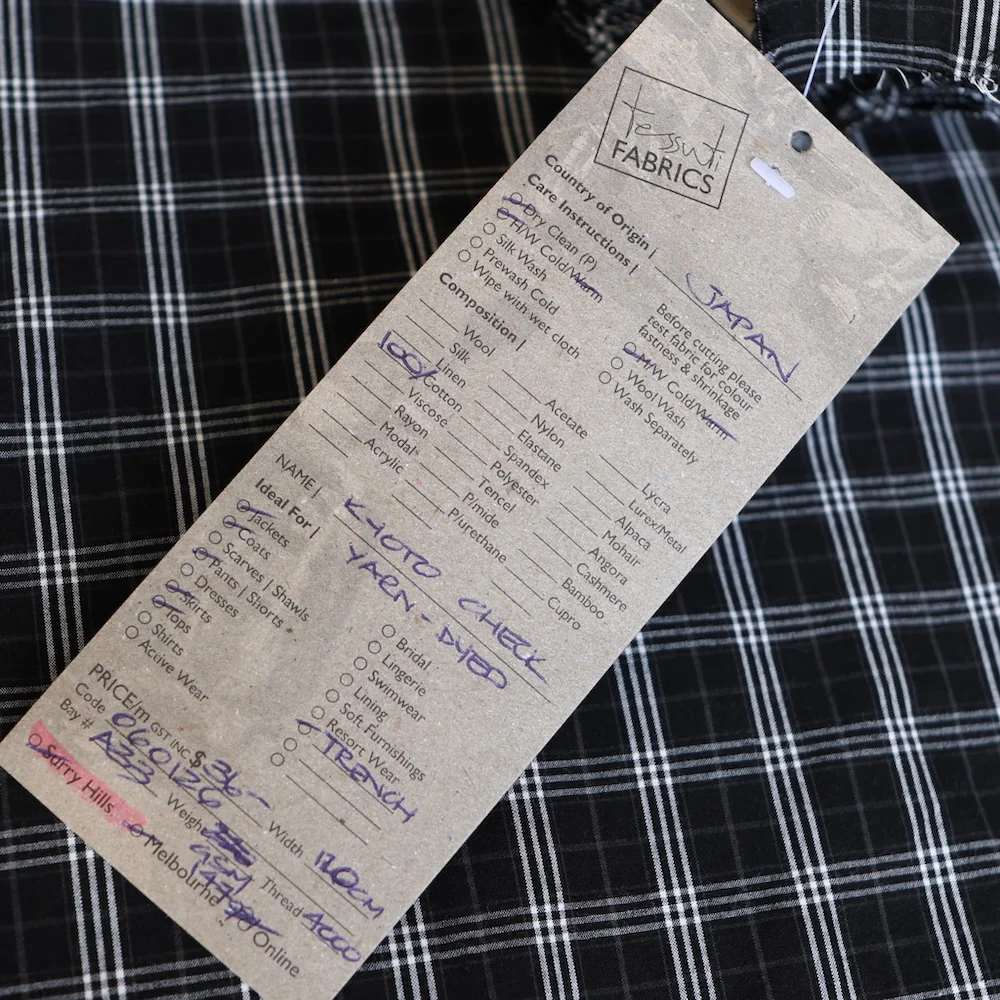 tessuti
FABRICS
Country of Origin | JAPAN
Care Instructions |
Dry Clean (P)
H/W Cold/Warm
Silk Wash
Prewash Cold
Wipe with wet cloth
Before cutting please
test fabric for colour
fastness & shrinkage
M/W Cold/Warm
Wool Wash
Wash Separately
Composition |
Wool
Silk
Linen
100% Cotton
Viscose
Rayon
Modal
Acrylic
Acetate
Nylon
Elastane
Spandex
Polyester
Tencel
P/mide
P/urethane
Lycra
Lurex/Metal
Alpaca
Mohair
Angora
Cashmere
Bamboo
Cupro
NAME | KYOTO CHECK
YARN-DYED
Ideal For |
Jackets
Coats
Scarves | Shawls
Pants | Shorts
Dresses
Skirts
Tops
Shirts
Active Wear
Bridal
Lingerie
Swimwear
Lining
Soft Furnishings
Resort Wear
TRENCH
PRICE/m GST INC $ 36-
Code 060126 Width 120CM
Bay # A33 Weight GSM 147 Thread A000
Surry Hills Melbourne Online